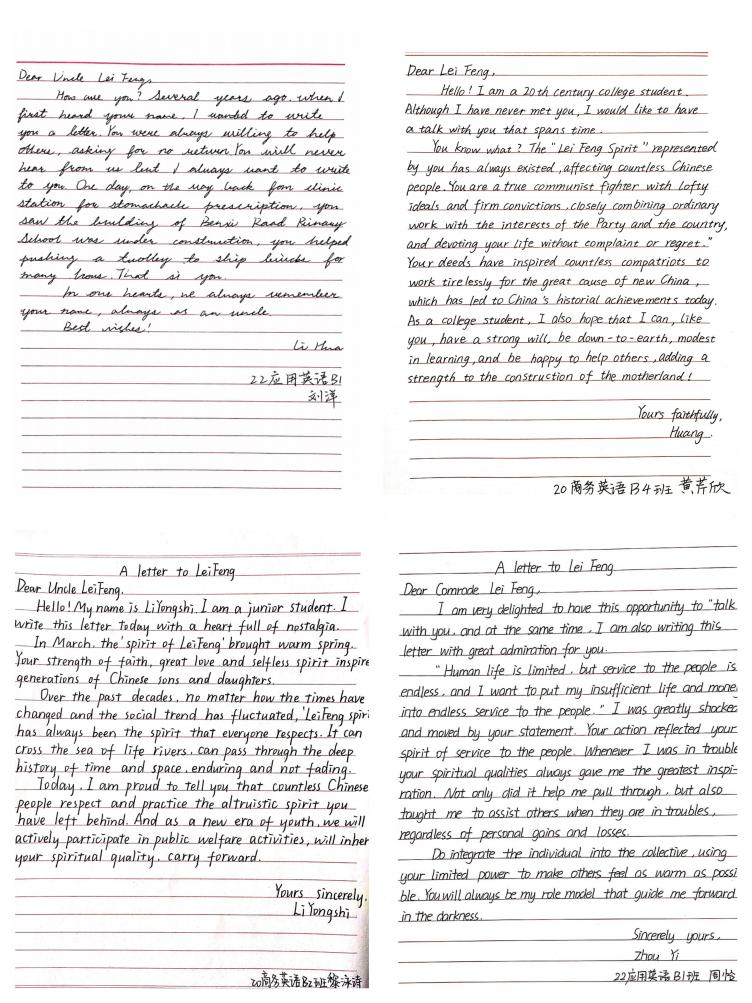 Dear Uncle Lei Feng,
How are you? Several years ago. when I
first heard your name, I wanted to write
you a letter. You were always willing to help
others, asking for no return. You will never
hear from us but I always want to write
to you. One day, on the way back fom clinic
station for stomachache prescription, you
saw the building of Benxi Road Primary
School was under construction, you helped
pushing a trolley to ship bricks for
many hous. That is you.
In one hearts, we always remember
your name, always as an uncle.
Best wishes!
Li Hua
22应用英语B1
刘洋
Dear Lei Feng,
Hello! I am a 20th century college student.
Although I have never met you, I would like to have
a talk with you that spans time.
You know what? The "Lei Feng Spirit" represented
by you has always existed, affecting countless Chinese
people. You are a true communist fighter with lofty
ideals and firm convictions, closely combining ordinary
work with the interests of the Party and the country,
and devoting your life without complaint or regret."
Your deeds have inspired countless compatriots to
work tirelessly for the great cause of new China,
which has led to China's historial achievements today.
As a college student, I also hope that I can, like
you, have a strong will, be down-to-earth, modest
in learning, and be happy to help others, adding a
strength to the construction of the motherland!
Yours faithfully,
Huang.
20商务英语B4班 黄芹欣
A letter to LeiFeng
Dear Uncle LeiFeng.
Hello! My name is LiYongshi. I am a junior student. I
write this letter today with a heart full of nostalgia.
In March, the 'spirit of LeiFeng' brought warm spring.
Your strength of faith, great love and selfless spirit inspire
generations of Chinese sons and daughters.
Over the past decades, no matter how the times have
changed and the social trend has fluctuated, 'LeiFeng spiri
has always been the spirit that everyone respects. It can
cross the sea of life rivers, can pass through the deep
history of time and space, enduring and not fading.
Today, I am proud to tell you that countless Chinese
people respect and practice the altruistic spirit you
have left behind. And as a new era of youth, we will
actively participate in public welfare activities, will inher
your spiritual quality, carry forward.
Yours sincerely,
LiYongshi
20商务英语B2班黎泳诗
A letter to lei Feng
Dear Comrade Lei Feng,
I am very delighted to have this opportunity to "talk
with you, and at the same time, I am also writing this
letter with great admiration for you.
"Human life is limited, but service to the people is
endless, and I want to put my insufficient life and mone
into endless service to the people." I was greatly shocked
and moved by your statement. Your action reflected your
spirit of service to the people. Whenever I was in trouble
your spiritual qualities always gave me the greatest inspi-
ration. Not only did it help me pull through, but also
taught me to assist others when they are in troubles,
regardless of personal gains and losses.
Do integrate the individual into the collective, using
your limited power to make others feel as warm as possi
ble. You will always be my role model that guide me forward
in the darkness.
Sincerely yours,
Zhou Yi
22应用英语B1班 周怡